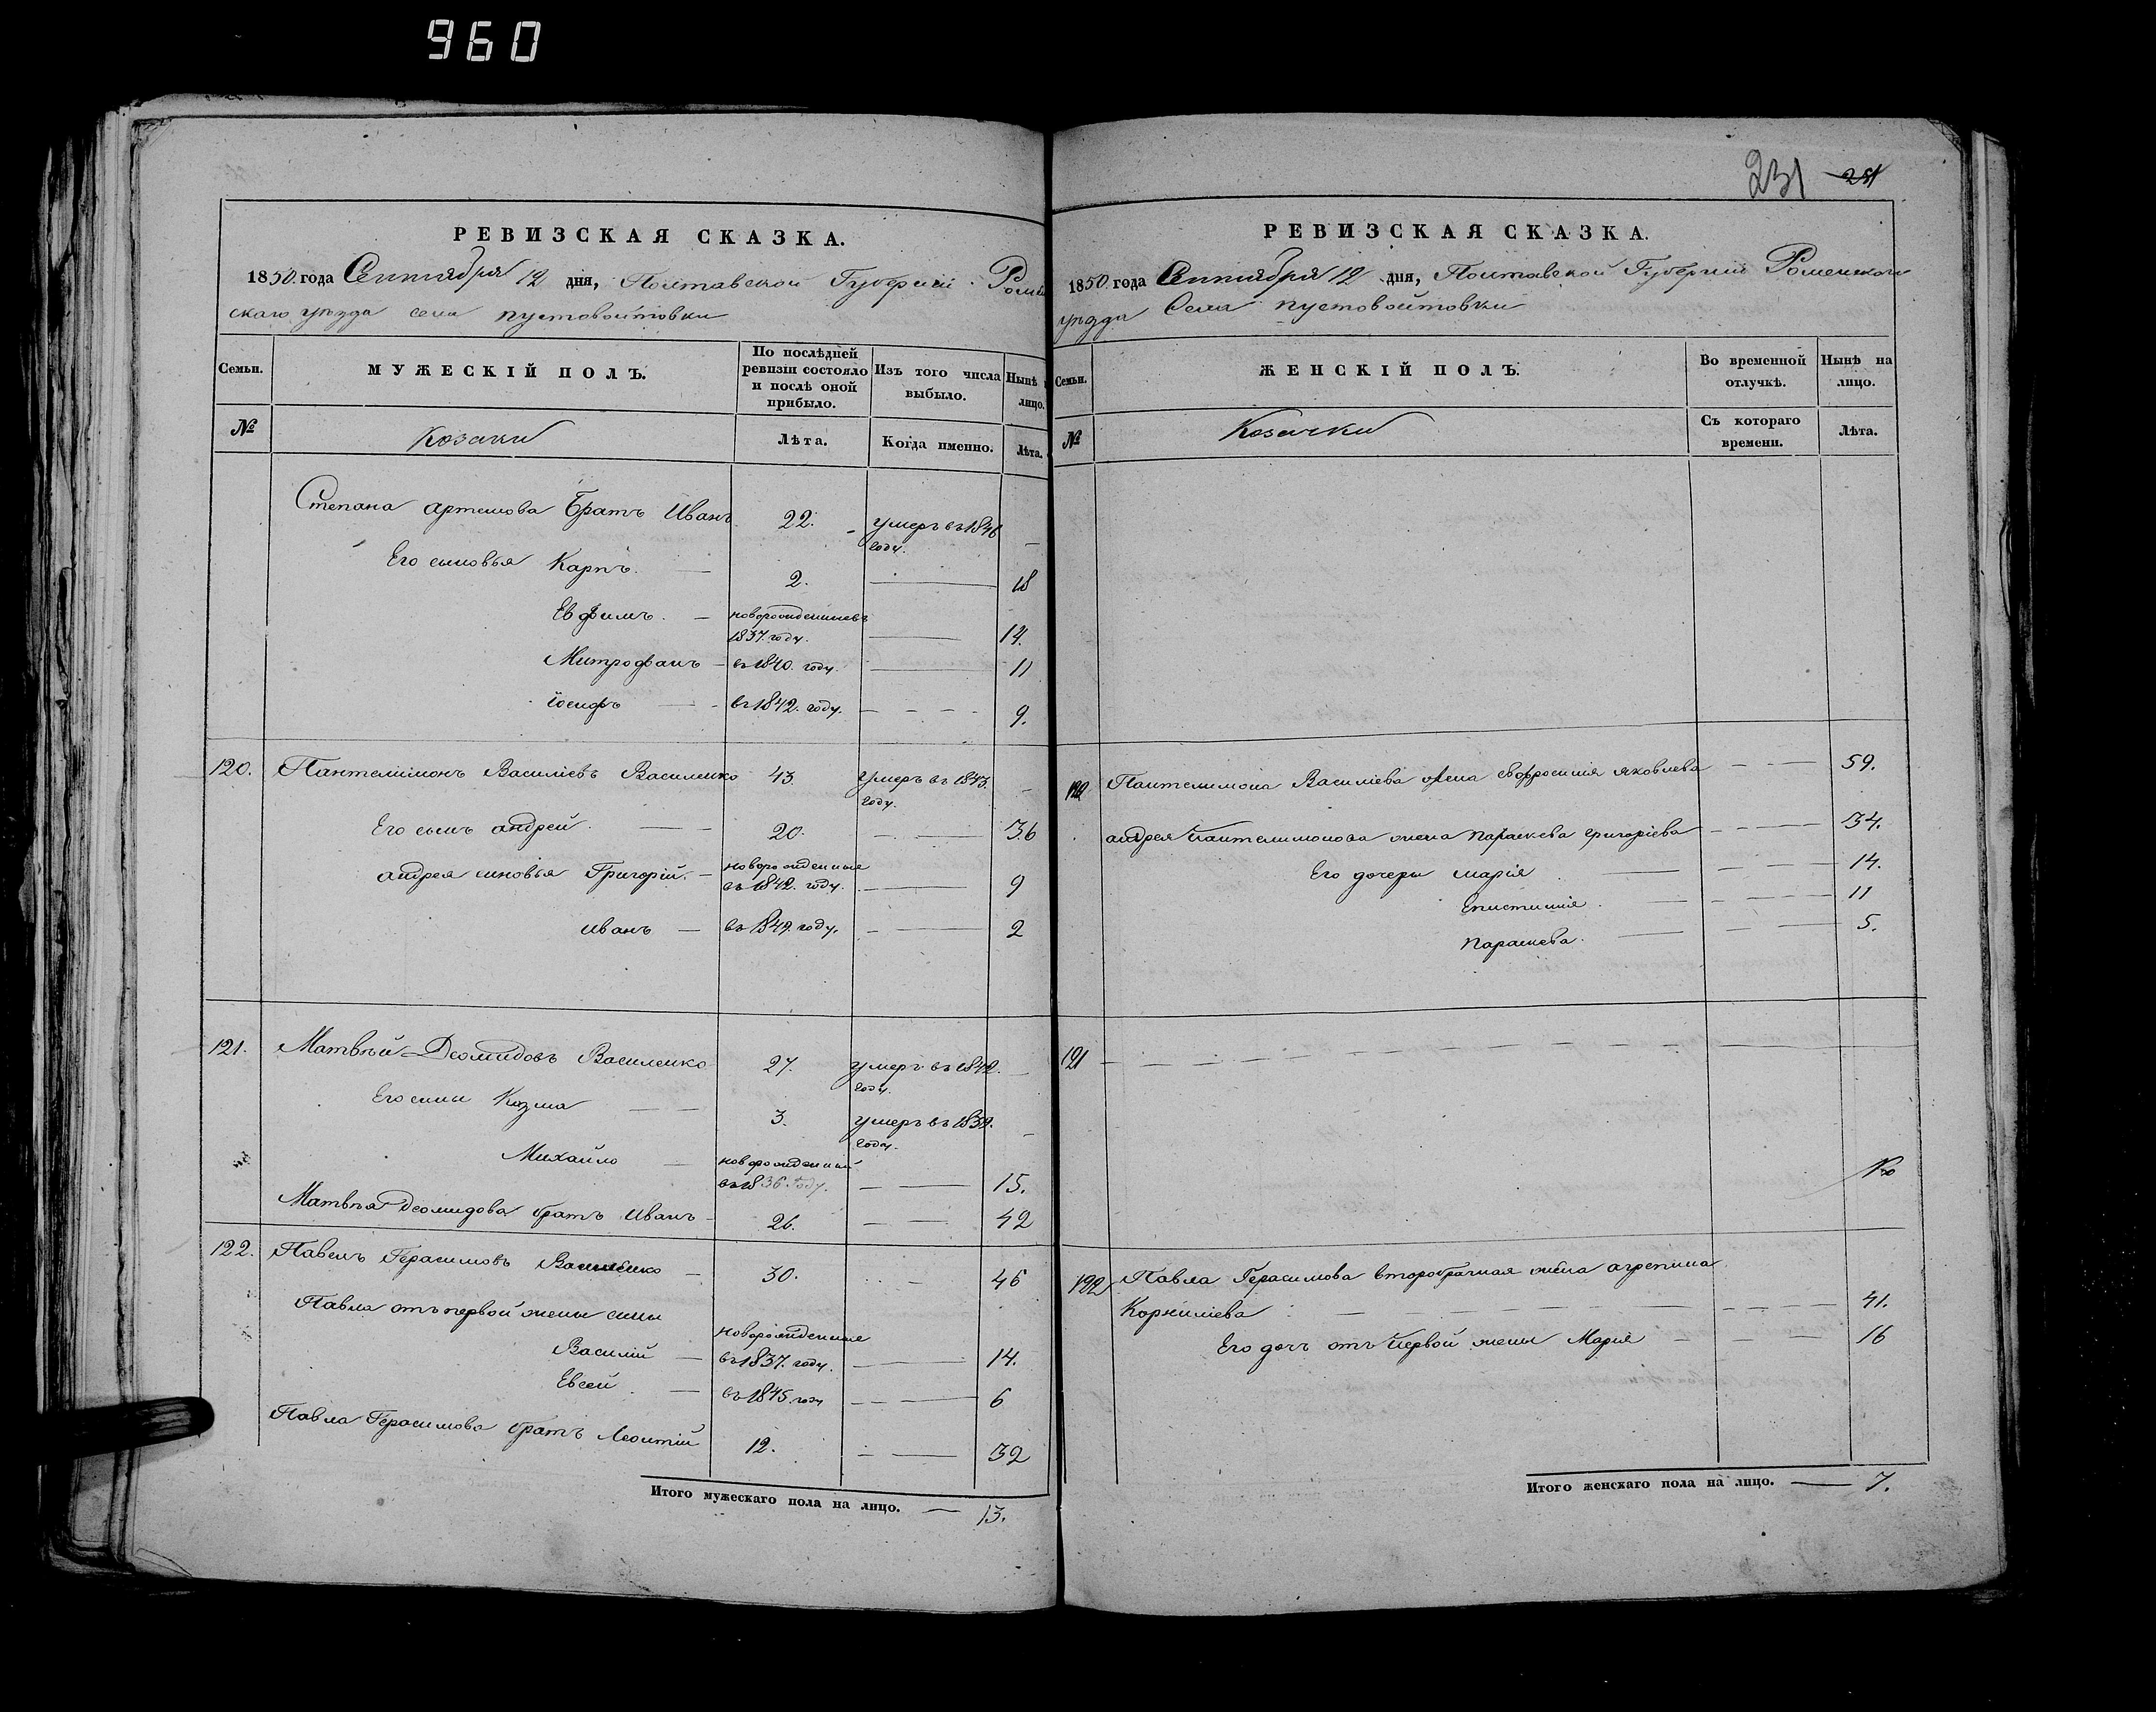 960
231 251
РЕВИЗСКАЯ СКАЗКА.
1850 года Сентября 12 дня, Полтавской Губерніи Ромен
скаго уѣзда села пустовойтовки
Семьи. МУЖЕСКІЙ ПОЛЪ. По послѣдней ревизіи состояло и послѣ оной прибыло. Изъ того числа выбыло. Нынѣ на лицо.
№ Козаки Лѣта. Когда именно. Лѣта.
Степана артемова Братъ Иванъ 22. умеръ въ 1846 году. —
Его сыновья Карпъ. 2. 18
Евфимъ. новорожденные въ 1837. году. 14.
Митрофанъ въ 1840. году. 11
іосифъ въ 1842. году. 9.
120. Пантелимонъ Василіевъ Василенко 43. умеръ въ 1843. году. —
Его сынъ андрей. 20. 36
андрея сыновья Григорій. новорожденные въ 1842. году. 9
иванъ въ 1849. году. 2
121. Матвѣй Деомидовъ Василенко 27. умеръ въ 1842. году. —
Его сыны Козма 3. умеръ въ 1839. году. —
Михайло новорожденный въ 1836. году. 15.
Матвѣя Деомидова братъ Иванъ 26. 42
122. Павелъ Герасимовъ Василенко 30. 46
Павла отъ первой жены сыны
Василій новорожденные въ 1837. году. 14.
Евсей въ 1845 году 6
Павла Герасимова братъ Леонтій 12. 32
Итого мужескаго пола на лицо. — 13.
РЕВИЗСКАЯ СКАЗКА.
1850 года Сентября 12 дня, Полтавской Губерніи Роменскаго
уѣзда Села пустовойтовки
Семьи. ЖЕНСКІЙ ПОЛЪ. Во временной отлучкѣ. Нынѣ на лицо.
№ Козачки Съ котораго времени. Лѣта.
120 Пантелимона Василіева жена евфросинія яковлева 59.
андрея Пантелимонова жена параскева григоріева 34.
Его дочери марія 14.
Епистимія. 11
параскева. 5.
121
122 Павла Герасимова второбрачная жена агрепина
Корниліева 41.
Его дочь отъ первой жены Марія 16
Итого женскаго пола на лицо. — 7.